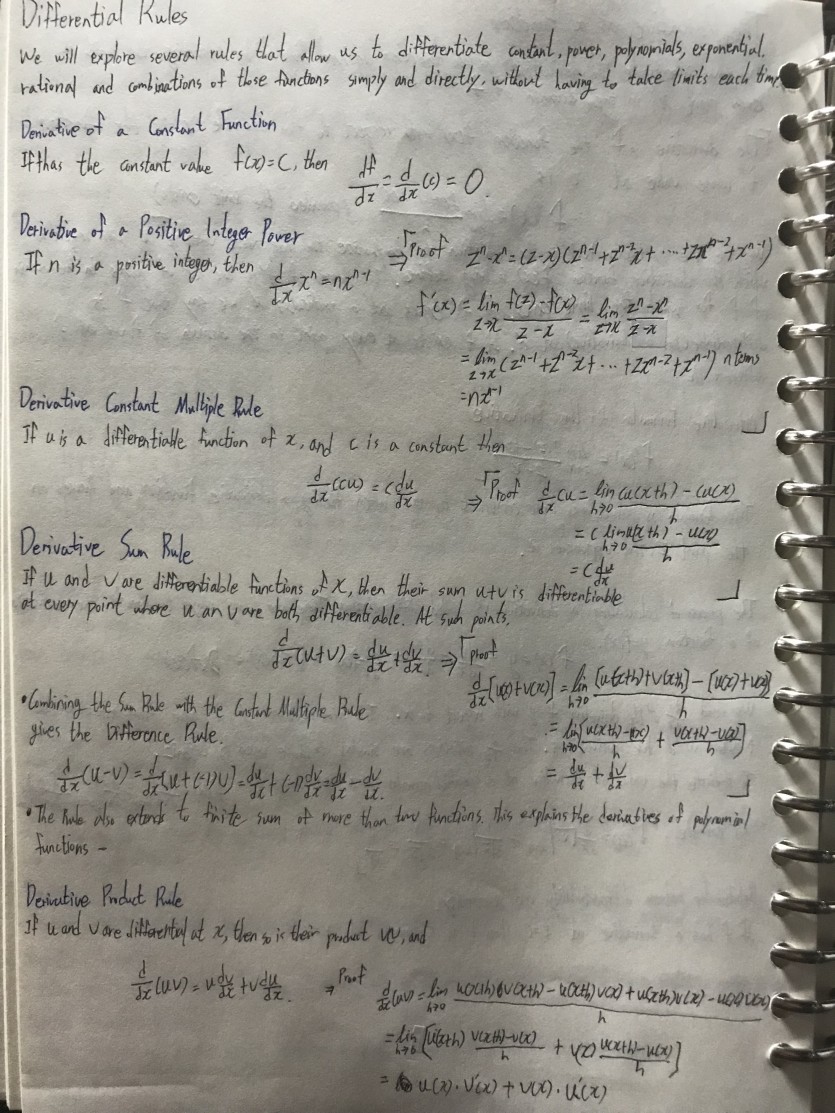 Differential Rules
We will explore several rules that allow us to differentiate constant, power, polynomials, exponential,
rational and combinations of those functions simply and directly, without having to take limits each time.
Derivative of a Constant Function
If f has the constant value f(x)=C, then df/dx = d/dx (c) = 0.
Derivative of a Positive Integer Power
If n is a positive integer, then d/dx xⁿ = nxⁿ⁻¹ ⇒ Proof zⁿ-xⁿ=(z-x)(zⁿ⁻¹+zⁿ⁻²x+ ⋯ +zxⁿ⁻²+xⁿ⁻¹)
f'(x) = lim z→x (f(z)-f(x))/(z-x) = lim z→x (zⁿ-xⁿ)/(z-x)
= lim z→x (zⁿ⁻¹+zⁿ⁻²x+ ⋯ +zxⁿ⁻²+xⁿ⁻¹) n terms
= nxⁿ⁻¹
Derivative Constant Multiple Rule
If u is a differentiable function of x, and c is a constant then
d/dx (cu) = c du/dx ⇒ Proof d/dx cu = lim h→0 (cu(x+h) - cu(x))/h
= c lim h→0 (u(x+h) - u(x))/h
= c du/dx
Derivative Sum Rule
If u and v are differentiable functions of x, then their sum u+v is differentiable
at every point where u an v are both differentiable. At such points,
d/dx (u+v) = du/dx + dv/dx. ⇒ Proof
d/dx [u(x)+v(x)] = lim h→0 ([u(x+h)+v(x+h)] - [u(x)+v(x)])/h
•Combining the Sum Rule with the Constant Multiple Rule
gives the Difference Rule.
= lim h→0 [(u(x+h)-u(x))/h + (v(x+h)-v(x))/h]
d/dx (u-v) = d/dx [u+(-1)v] = du/dx + (-1) dv/dx = du/dx - dv/dx.
= du/dx + dv/dx
•The Rule also extends to finite sum of more than two functions. This explains the derivatives of polynomial
functions -
Derivative Product Rule
If u and v are differential at x, then so is their product uv, and
d/dx (uv) = u dv/dx + v du/dx. ⇒ Proof
d/dx (uv) = lim h→0 (u(x+h)v(x+h) - u(x+h)v(x) + u(x+h)v(x) - u(x)v(x))/h
= lim h→0 [u(x+h) (v(x+h)-v(x))/h + v(x) (u(x+h)-u(x))/h]
= u(x)·v'(x) + v(x)·u'(x)